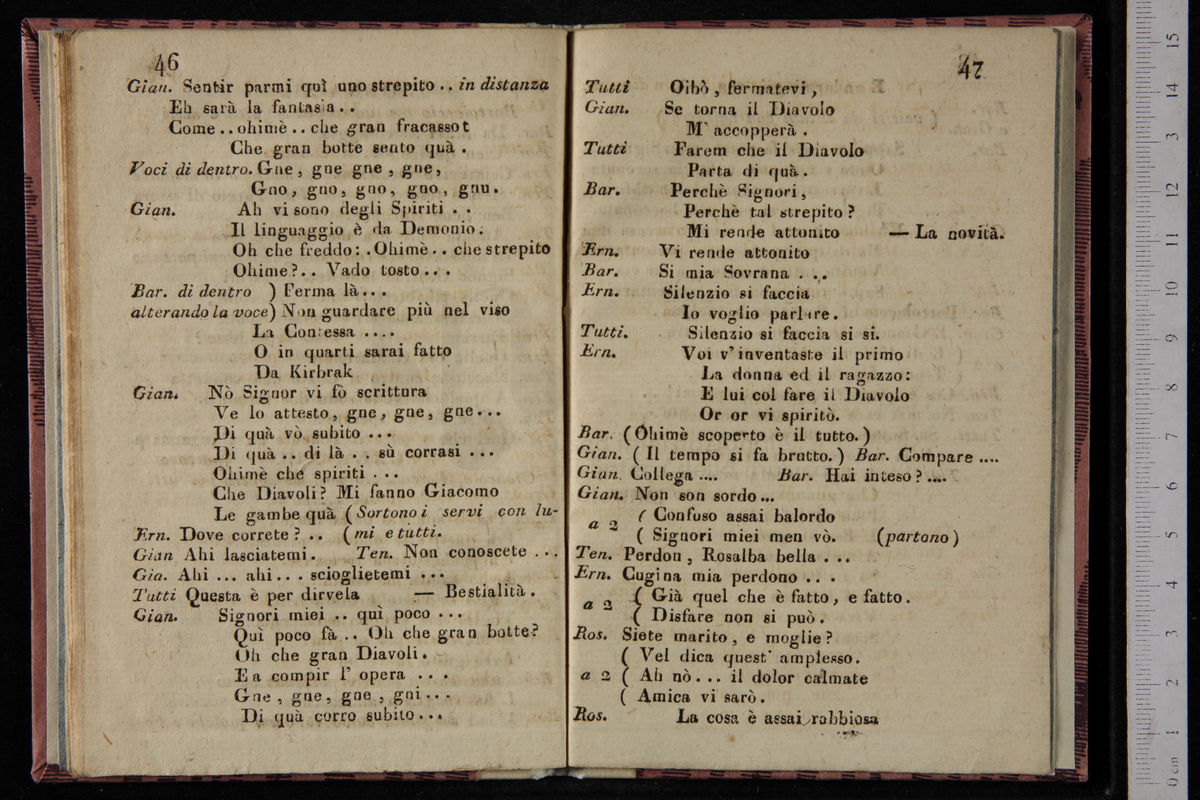 46
Gian. Sentir parmi quì uno strepito .. in distanza
Eh sarà la fantasia . .
Come .. ohimè .. che gran fracassot
Che gran botte sento quà .
Voci di dentro. Gne , gne gne , gne,
Gno, gno, gno, gno, gnu.
Gian. Ah vi sono degli Spiriti . .
Il linguaggio è da Demonio.
Oh che freddo: . Ohimè . . che strepito
Ohime ? . . Vado tosto . . .
Bar. di dentro ) Ferma là . . .
alterando la voce) Non guardare più nel viso
La Contessa . . . .
O in quarti sarai fatto
Da Kirbrak
Gian. Nò Signor vi fò scrittura
Ve lo attesto, gne, gne, gne . . .
Di quà vò subito . . .
Di quà . . di là . . sù corrasi . . .
Ohimè che spiriti . . .
Che Diavoli? Mi fanno Giacomo
Le gambe quà ( Sortono i servi con lu-
Ern. Dove correte ? . . (mi e tutti.
Gian Ahi lasciatemi . Ten. Non conoscete . . .
Gia. Ahi ... ahi . . . scioglietemi . . .
Tutti Questa è per dirvela — Bestialità .
Gian. Signori miei .. quì poco . . .
Quì poco fà .. Oh che gran botte?
Oh che gran Diavoli .
E a compir l' opera . . .
Gne , gne, gne , gni . . .
Di quà corro subito . . .
47
Tutti Oibò , fermatevi ,
Gian. Se torna il Diavolo
M' accopperà .
Tutti Farem che il Diavolo
Parta di quà .
Bar. Perchè Signori ,
Perchè tal strepito ?
Mi rende attonito — La novità.
Ern. Vi rende attonito
Bar. Si mia Sovrana . . .
Ern. Silenzio si faccia
Io voglio parlare.
Tutti. Silenzio si faccia si si.
Ern. Voi v' inventaste il primo
La donna ed il ragazzo:
E lui col fare il Diavolo
Or or vi spiritò.
Bar. (Ohimè scoperto è il tutto.)
Gian. ( Il tempo si fa brutto. ) Bar. Compare ....
Gian. Collega .... Bar. Hai inteso ? ....
Gian. Non son sordo ...
a 2 ( Confuso assai balordo
( Signori miei men vò. (partono)
Ten. Perdon , Rosalba bella . . .
Ern. Cugina mia perdono . . .
a 2 ( Già quel che è fatto, e fatto.
( Disfare non si può.
Ros. Siete marito , e moglie ?
( Vel dica quest' amplesso.
a 2 ( Ah nò . . . il dolor calmate
( Amica vi sarò .
Ros. La cosa è assai rabbiosa
0 cm 1 2 3 4 5 6 7 8 9 10 11 12 13 14 15